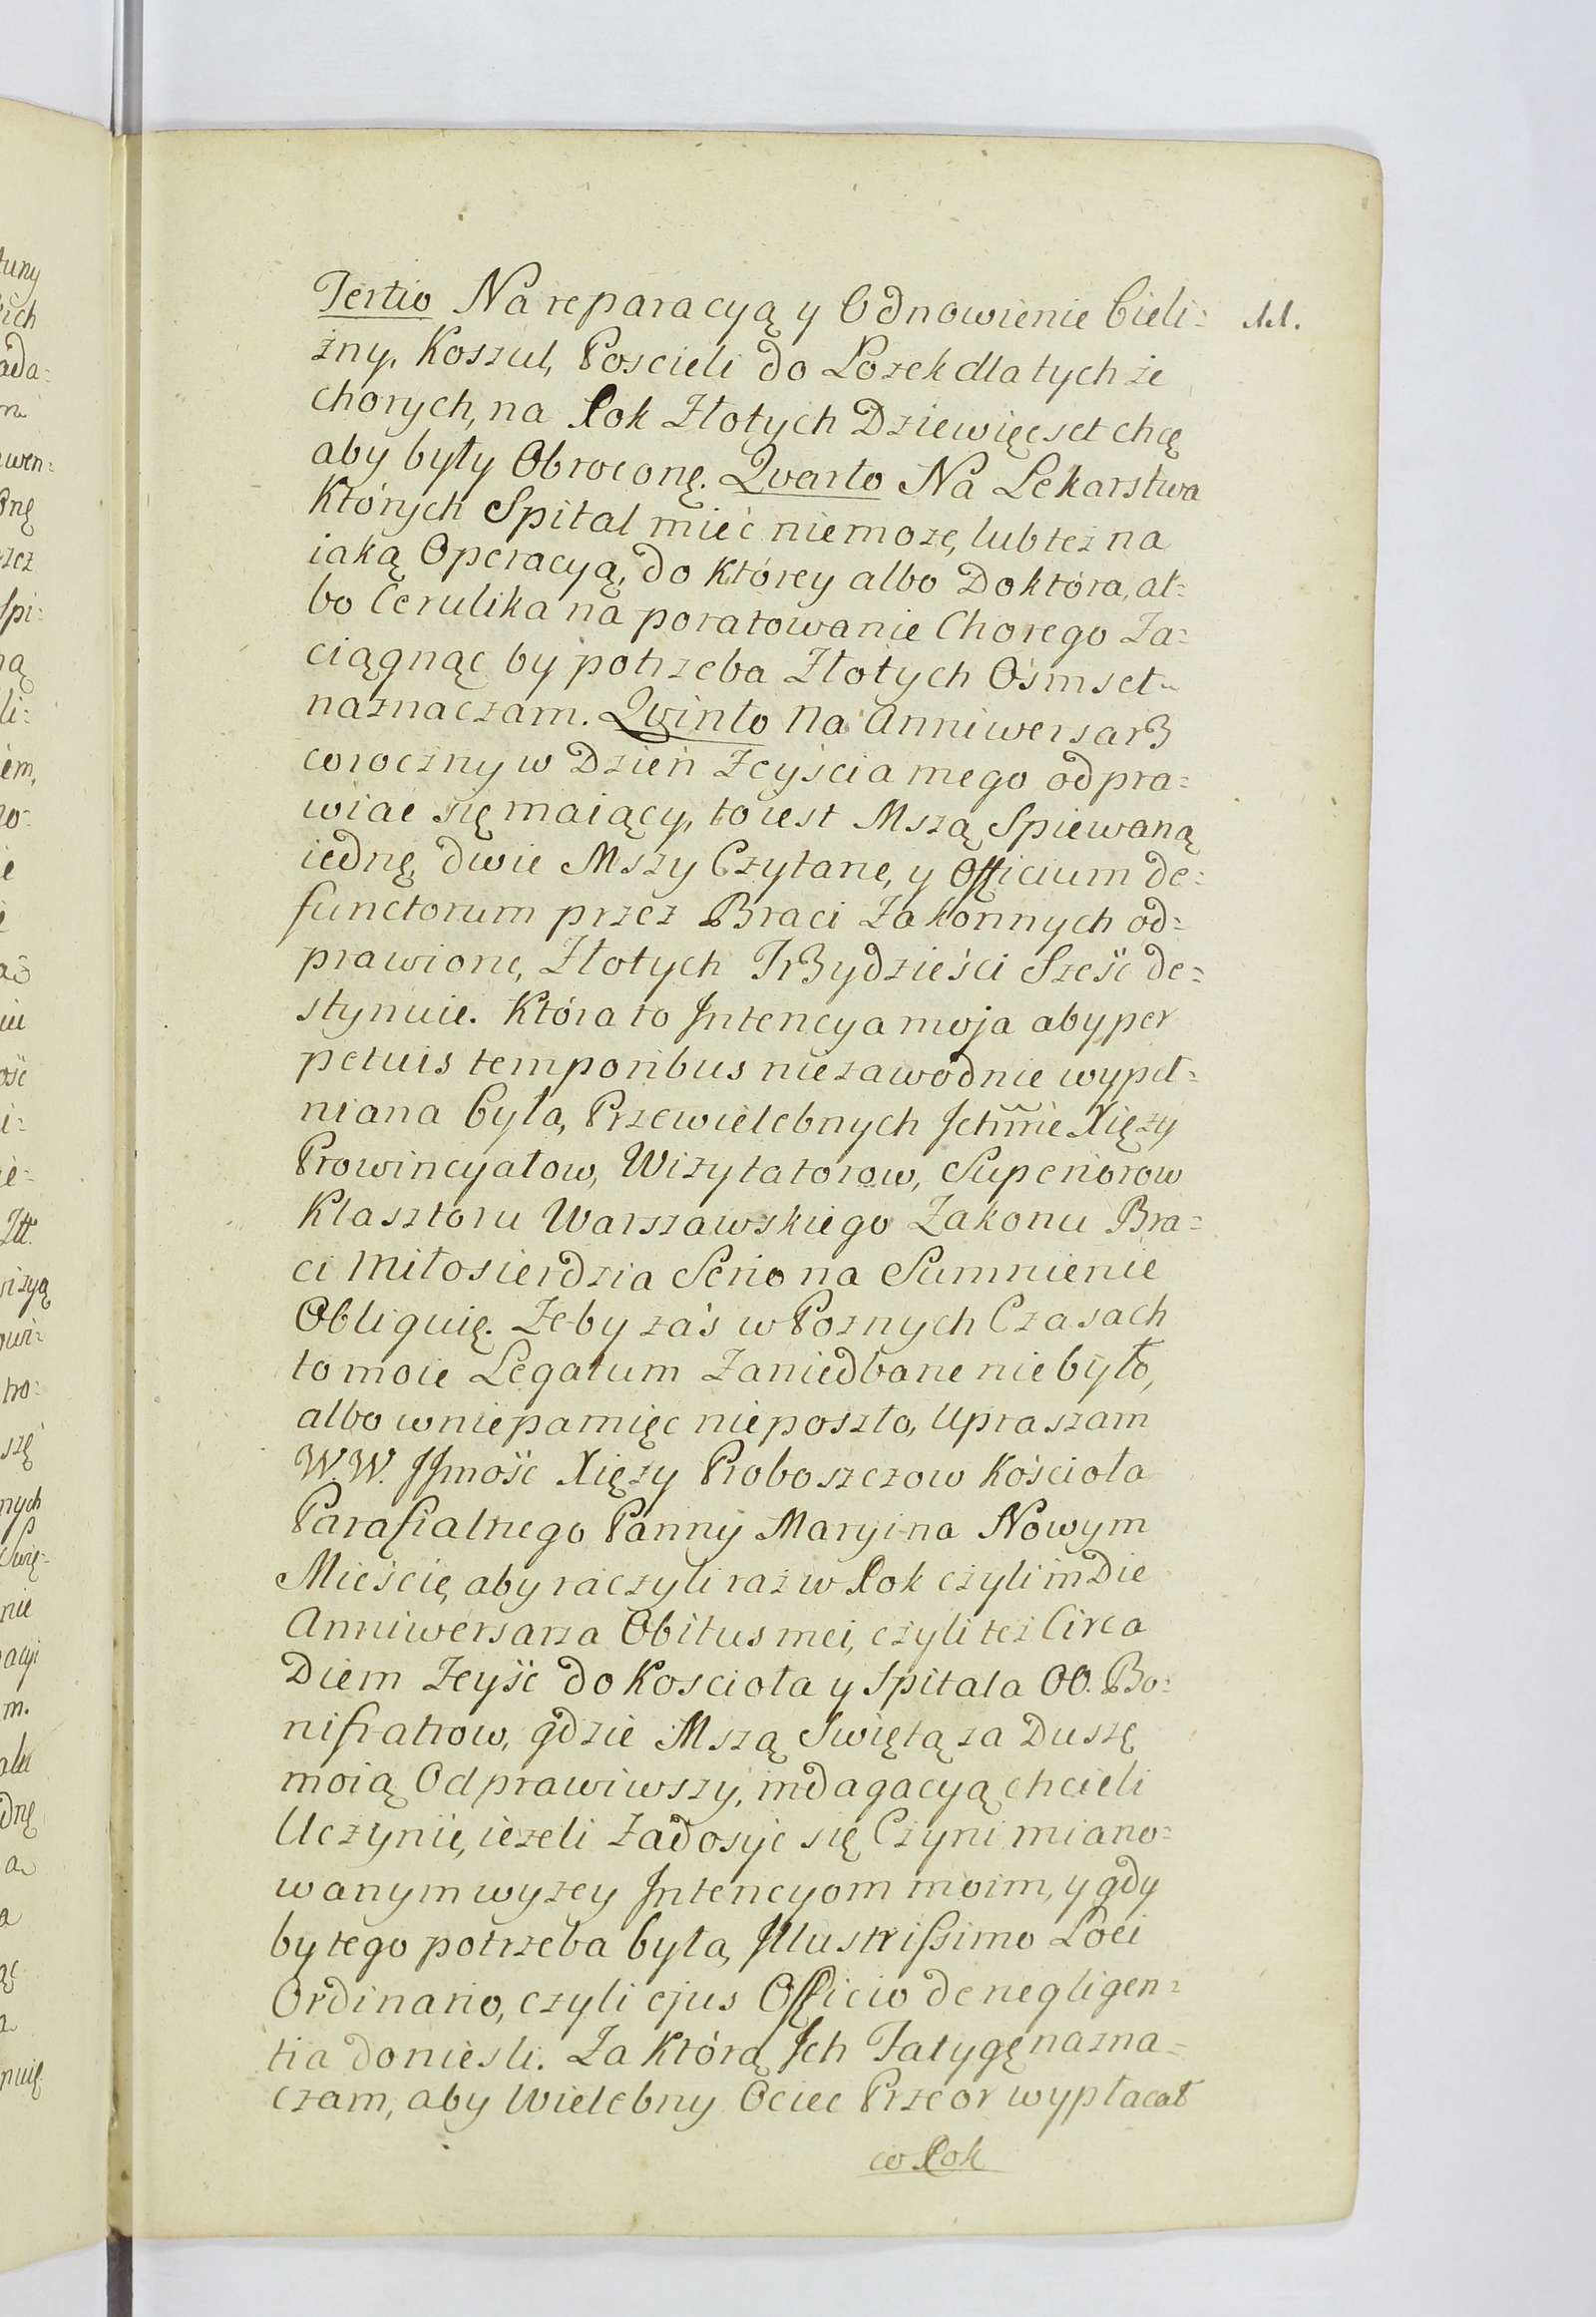 11.
Tertio Na reparacyą y Odnowienie bieli=
zny, Koszul, Poscieli do Łozek dla tych że
chorych, na Rok Złotych Dziewięcset chcę
aby były Obroconę. Qvarto Na Lekarstwa
których Spital mieć niemoze, lub też na
iaką Operacyą, do którey albo Doktóra, al=
bo Cerulika na poratowanie Chorego Za=
ciągnąć by potrzeba Złotych Ośmset
naznaczam. Qvinto Na Anniwersarz
coroczny w Dzień Zeyścia mego odpra=
wiać się maiący, to iest Mszą Spiewaną
iednę, dwie Mszy Czytane, y Officium de=
functorum przez Braci Zakonnych od=
prawione, Złotych Trzydzieści Sześć de=
stynuie. Która to Intencya moja aby per
petuis temporibus niezawodnie wypeł=
niana była, Przewielebnych Ichmć Xięży
Prowincyałow, Wizytatorow, Superiorow
Klasztoru Warszawskiego Zakonu Bra=
ci Miłosierdzia Serio na Sumnienie
Obliguię. Zeby zaś w Poznych Czasach
to moie Legatum Zaniedbane nie było,
albo w niepamięc nieposzło, Upraszam
W.W. JJmość Xięży Proboszczow Kościoła
Parafialnego Panny Maryi na Nowym
Mieście, aby raczyli raz w Rok czyli in Die
Anniwersarza Obitus mei, czyli też Circa
Diem Zeyść do Koscioła y Spitala OO. Bo=
nifratrow, gdzie Mszą Swiętą za Duszę
moią Odprawiwszy, indagacyą chcieli
Uczynić, ieżeli Zadosyć się Czyni miano=
wanym wyzey Intencyom moim, y gdy
by tego potrzeba była, Illustrissimo Loci
Ordinario, czyli ejus Officio de negligen=
tia donieśli. Za którą Ich Fatygę nazna=
czam, aby Wielebny Ociec Przeor wypłacał
co Rok